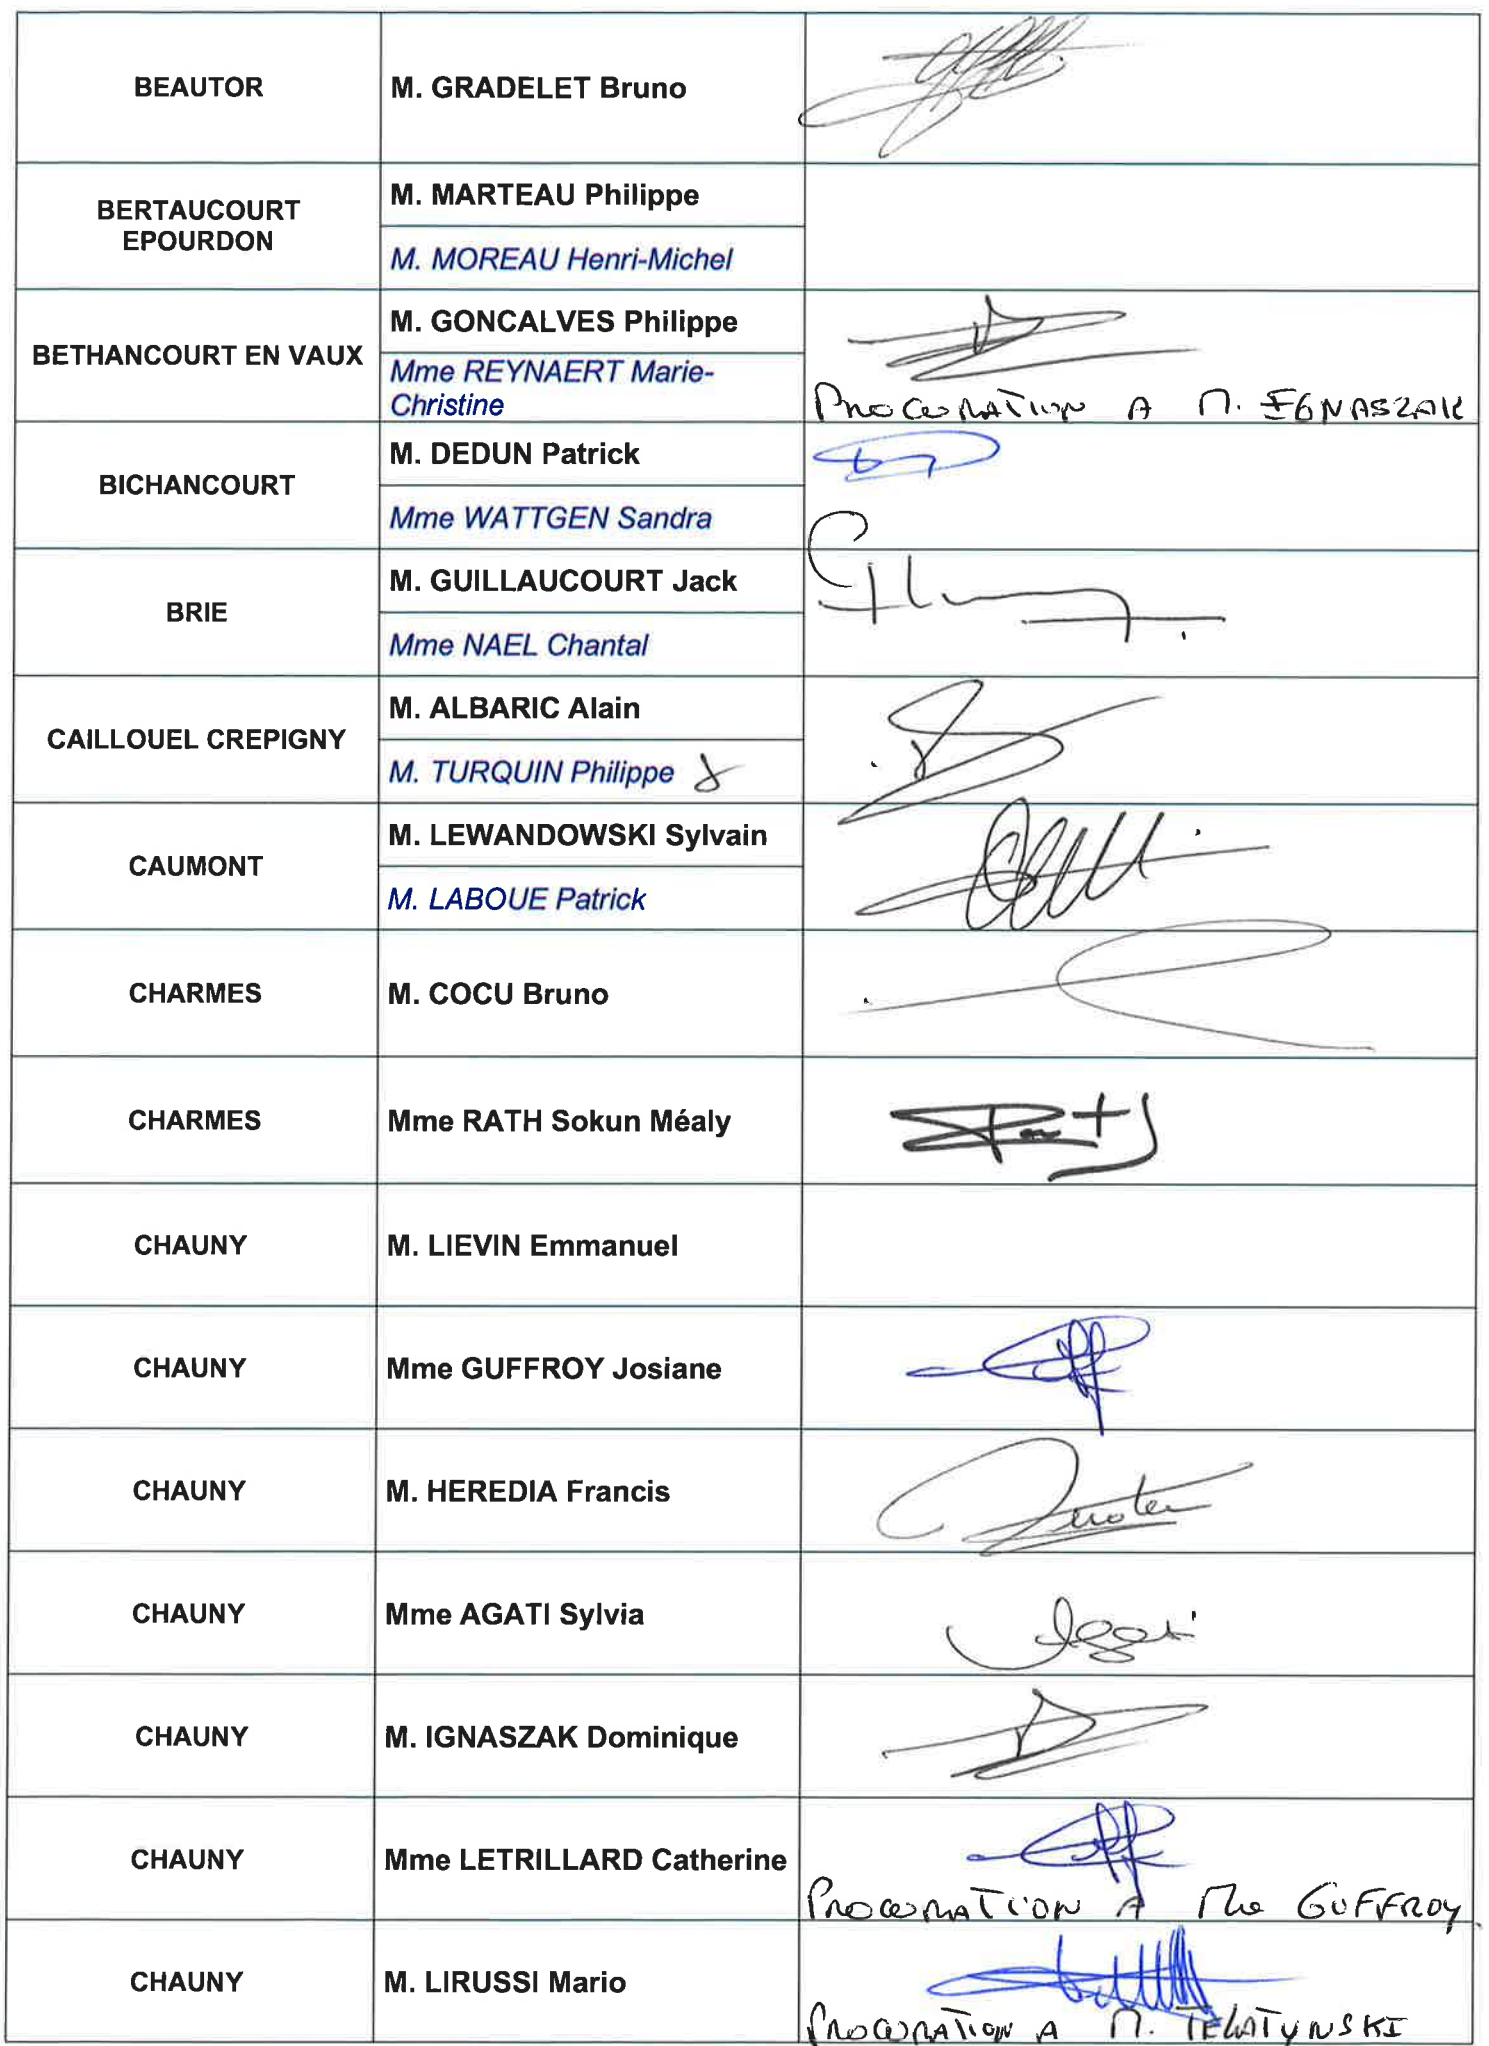 BEAUTOR M. GRADELET Bruno
BERTAUCOURT EPOURDON M. MARTEAU Philippe
M. MOREAU Henri-Michel
BETHANCOURT EN VAUX M. GONCALVES Philippe
Mme REYNAERT Marie-
Christine
PROCURATION A M. IGNASZAK
BICHANCOURT M. DEDUN Patrick
Mme WATTGEN Sandra
BRIE M. GUILLAUCOURT Jack
Mme NAEL Chantal
CAILLOUEL CREPIGNY M. ALBARIC Alain
M. TURQUIN Philippe
CAUMONT M. LEWANDOWSKI Sylvain
M. LABOUE Patrick
CHARMES M. COCU Bruno
CHARMES Mme RATH Sokun Méaly
CHAUNY M. LIEVIN Emmanuel
CHAUNY Mme GUFFROY Josiane
CHAUNY M. HEREDIA Francis
CHAUNY Mme AGATI Sylvia
CHAUNY M. IGNASZAK Dominique
CHAUNY Mme LETRILLARD Catherine
PROCURATION A Mme GUFFROY
CHAUNY M. LIRUSSI Mario
PROCURATION A M. TELATYNSKI